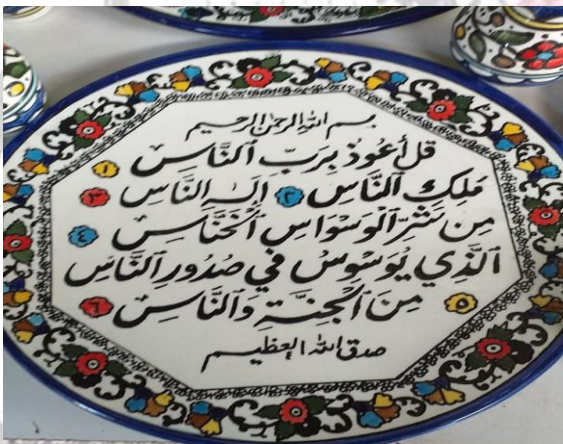 بسم الله الرحمن الرحيم
قل أعوذ برب الناس ١
ملك الناس ٢ إله الناس ٣
من شر الوسواس الخناس ٤
الذي يوسوس في صدور الناس
٥ من الجنة والناس ٦
صدق الله العظيم